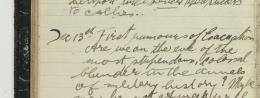 to Cathies.
Dec 13th First rumours of Evacuation
Are we on the eve of the
most stupendous, colossal
blunder in the annals
of military history? Maybe